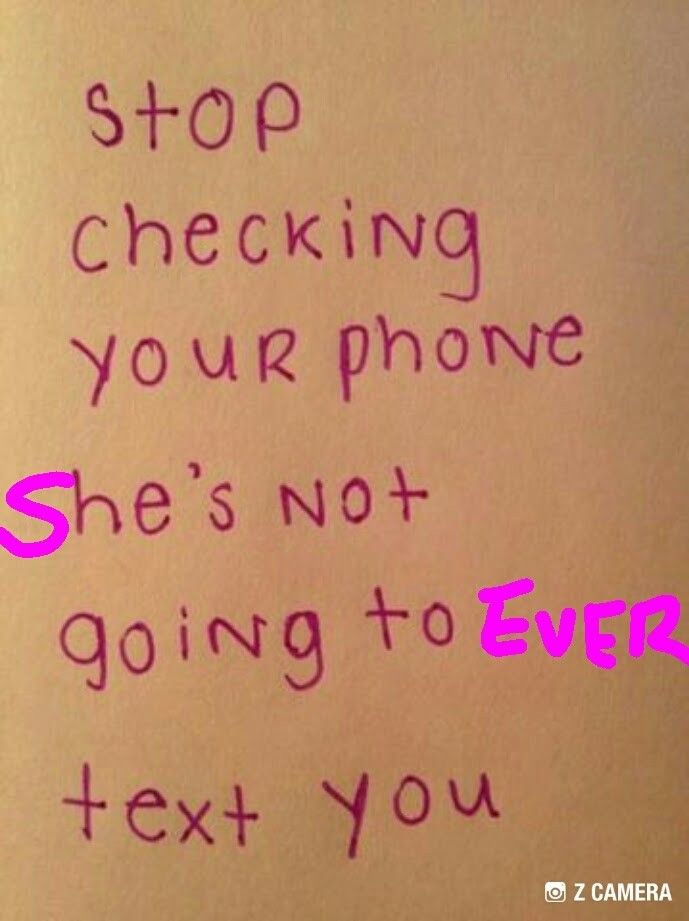 Stop
checking
YouR phoNe
She's Not
goiNg to EVER
text you
Z CAMERA